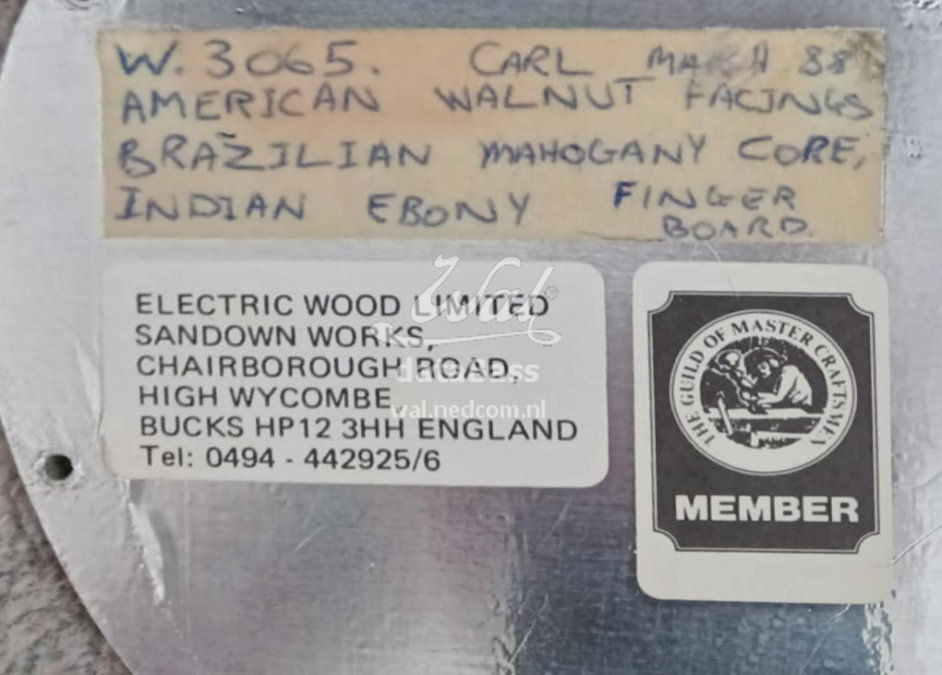 W. 3065. CARL MARCH 88
AMERICAN WALNUT FACINGS
BRAZILIAN MAHOGANY CORE,
INDIAN EBONY FINGER
BOARD.
ELECTRIC WOOD LIMITED
SANDOWN WORKS,
CHAIRBOROUGH ROAD,
HIGH WYCOMBE
BUCKS HP12 3HH ENGLAND
Tel: 0494 - 442925/6
Wal®
database
wal.nedcom.nl
THE GUILD OF MASTER CRAFTSMEN
MEMBER